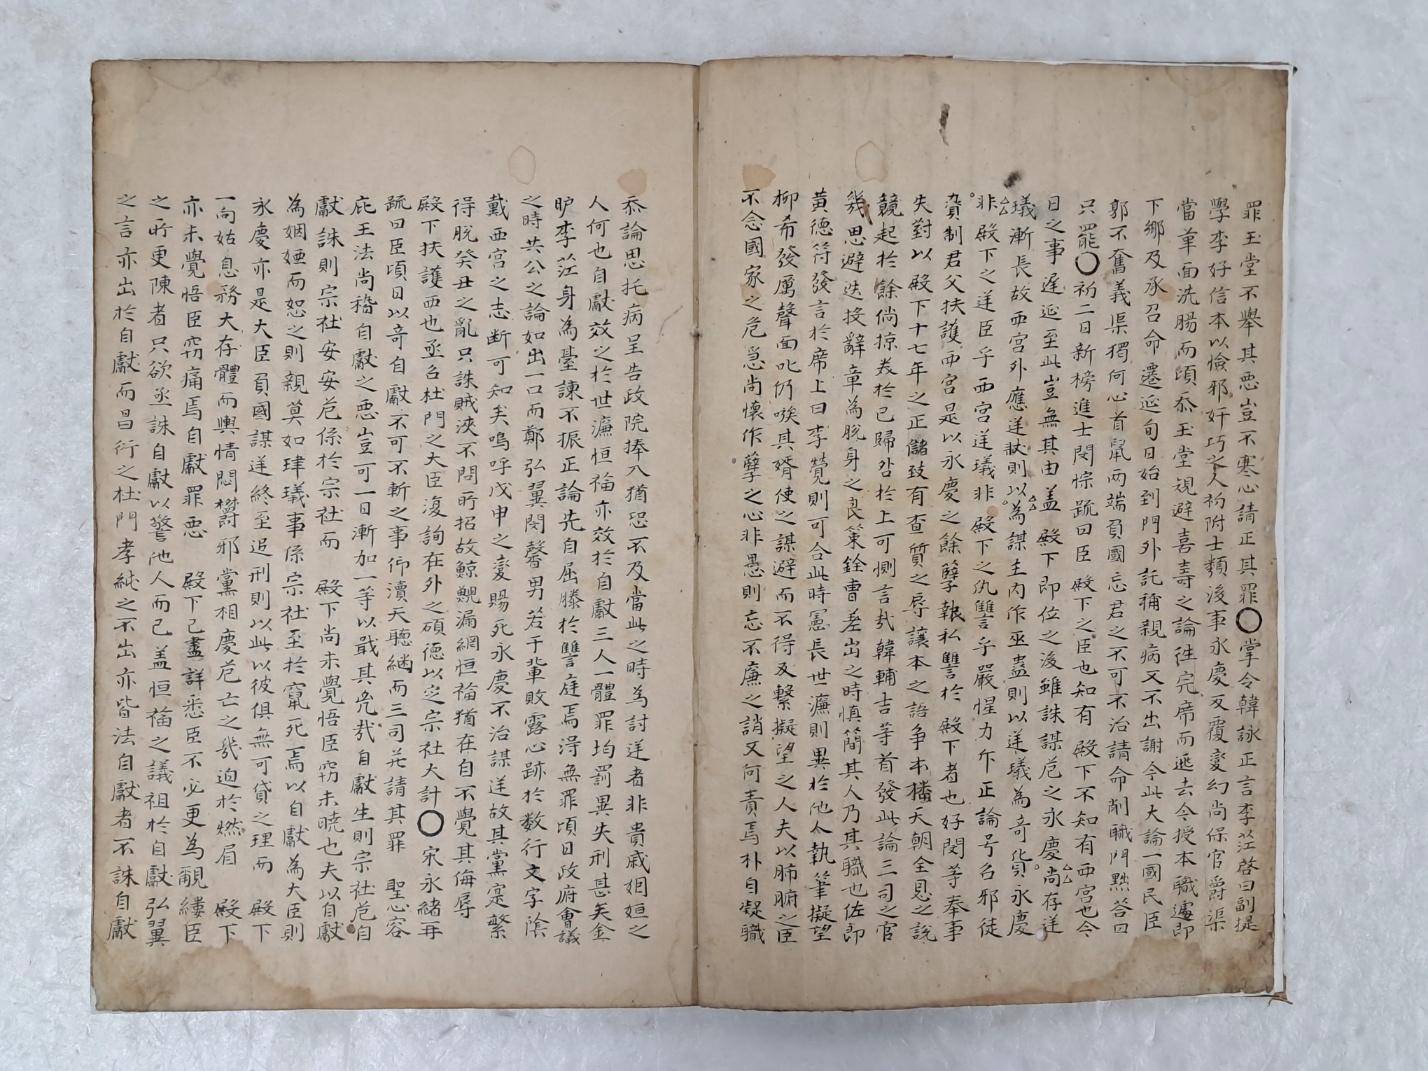 罪玉堂不擧其惡豈不寒心請正其罪○掌令韓詠正言李茳啓曰副提
學李好信本以憸邪奸巧之人初附士類後事永慶反覆變幻尚保官爵渠
當革面洗腸而頃忝玉堂規避喜壽之論徃完席而逃去今授本職遽即
下鄉及承召命遷延旬日始到門外託稱親病又不出謝今此大論一國民臣
郭不奮義渠獨何心首鼠兩端負國忘君之不可不治請命削職門黜答曰
只罷○初二日新榜進士閔悰疏曰臣 殿下之臣也知有 殿下不知有西宮也今
日之事遅延至此豈無其由盖 殿下即位之後雖誅謀危之永慶尚存逆
㼁漸長故西宮外應逆㼁則以為謀主內作巫蠱則以逆㼁為奇貨永慶
非 殿下之逆臣乎西宮逆㼁非 殿下之仇讐乎嚴惺力斥正論号召邪徒
賫制君父扶護西宮是以永慶之餘孽報私讐於 殿下者也好閔等奉事
失對以 殿下十七年之正儲致有查質之辱讓本之語爭本播天朝全恩之説
競起於餘倘掠秦於已歸咎於上可惻言哉韓輔吉等首發此論三司之官
幾思避迭挍辭章為脫身之良策銓曹差出之時慎簡其人乃其職也佐郎
黃德符發言於席上曰李覮則可合此時憲長世濂則異於他人執筆擬望
柳希發厲聲面叱仍嗾其婿使之謀避而不得及繫擬望之人夫以肺腑之臣
不念國家之危急尚懷作孽之心非愚則忘不廉之誚又何責焉朴自凝職
忝論思托病呈告政院捧入猶恐不及當此之時為討逆者非貴戚姻姮之
人何也自獻效之於世濂恒福亦效於自獻三人一體罪均罰異失刑甚矣金
昈李茳身為臺諫不振正論先自屈膝於讐庭焉淂無罪頃日政府會議
之時共公之論如出一口而鄭弘翼閔馨男若干輩敗露心跡於数行文字陰
戴西宮之志断可知矣嗚呼戊申之変賜死永慶不治謀逆故其黨寔繁
得脫癸丑之亂只誅賊浹不問所招故鯨鯢漏網恒福猶在自不覺其侮辱
殿下扶護西也亟召杜門之大臣復詢在外之碩德以定宗社大計○宋永緒再
䟽曰臣頃日以奇自獻不可不斬之事仰瀆天聽継而三司並請其罪 聖心容
庇王法尚稽自獻之惡豈可一日漸加一等以戢其兇哉自獻生則宗社危自
獻誅則宗社安安危係於宗社而 殿下尚未覺悟臣窃未暁也夫以自獻
為姻婭而恕之則親莫如㻋㼁事係宗社至於竄死焉以自獻為大臣則
永慶亦是大臣負國謀逆終至追刑則以此以彼俱無可貸之理而 殿下
一向姑息務大存體而輿情悶欝邪黨相慶危亡之幾迫於燃眉 殿下
亦未覺悟臣窃痛焉自獻罪惡 殿下已盡詳悉臣不必更為覼縷臣
之所更陳者只欲亟誅自獻以警他人而已盖恒福之議祖於自獻弘翼
之言亦出於自獻而昌衍之杜門孝純之不出亦皆法自獻者不誅自獻